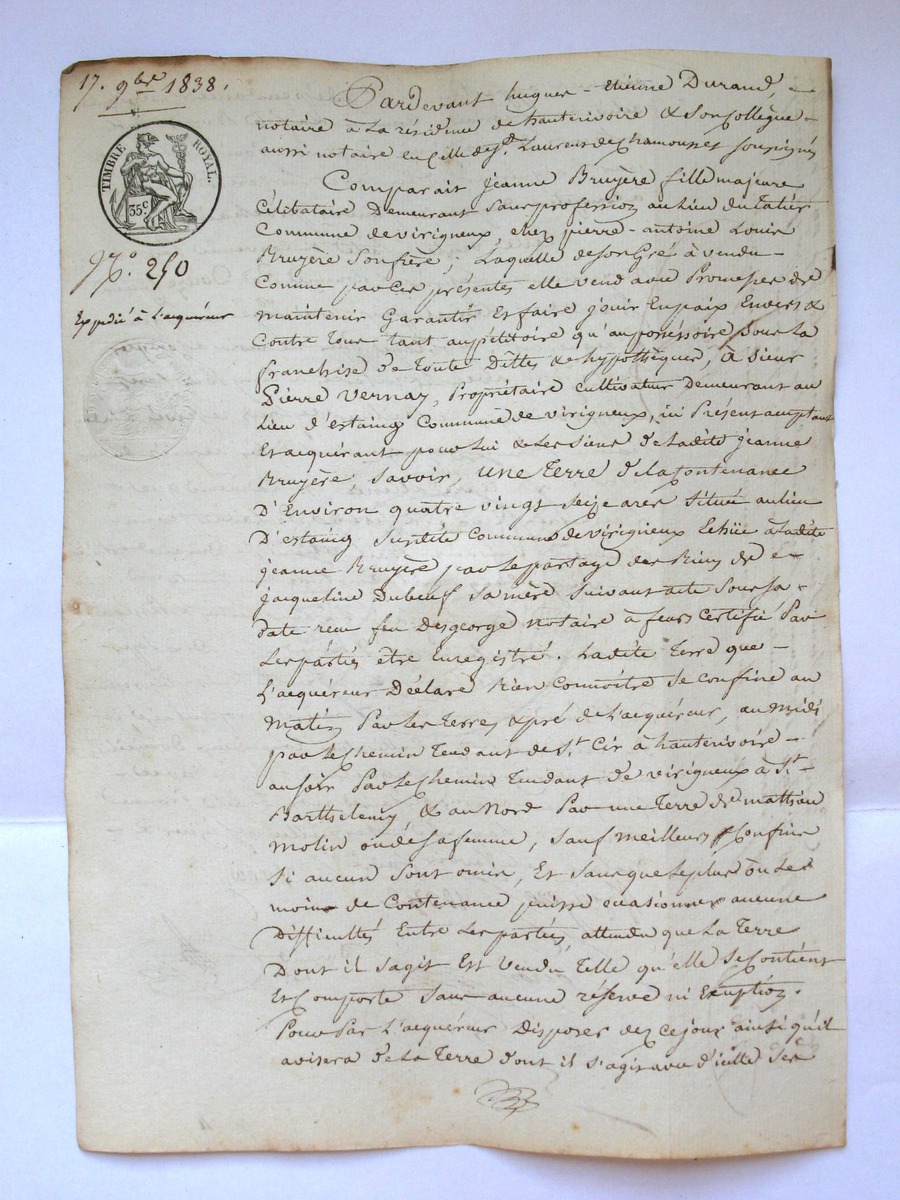 17. 9bre 1838.
TIMBRE ROYAL.
35c
No. 250
Expédié à l'acquéreur
Pardevant hugues-etienne Durand,
notaire à La résidence de hauterivoire & son Collègue
aussi notaire en celle de St. Laurent de Chamousset soussignés
Comparait jeanne Bruyère fille majeure
Célibataire Demeurant sans profession au lieu du
Commune de virigneux, chez pierre-antoine Louis
Bruyère son frère; Laquelle de son Gré à vendu
Comme par Ces présentes elle vend avec Promesse de
maintenir Garantir Et faire jouir En paix Envers &
Contre Tous tant au pétitoire qu'au possessoire sous La
franchise de Toute Dettes & hypothèques, à sieur
Pierre Vernay, Propriétaire cultivateur Demeurant au
Lieu d'estaing Commune de virigneux, ici Présent acceptant
Et acquérant pour Lui & Les Siens de Ladite jeanne
Bruyère, savoir, une Terre de la Contenance
D'Environ quatre vingt seize ares située au lieu
D'estaing susdite Commune de virigneux Echüe à Ladite
jeanne Bruyère par Le partage des Biens de
jacqueline Dubeuf sa mère suivant acte sous sa
date reçu feu Desgeorge notaire à feurs Certifié Par
Les parties être Enregistré. Ladite Terre que
L'acquéreur Déclare Bien Connoître se confine au
matin Par Les Terres & pré de L'acquéreur, au midi
par Le Chemin Tendant de St. Cir à hauterivoire
au soir Par Le Chemin Tendant de virigneux à St.
Barthelemy, & au Nord Par une Terre de mathieu
molin ou de sa femme, sauf meilleurs Confins
si aucun sont omis, Et sans que Le plus où Le
moins de Contenance puisse occasionner aucune
Difficultés Entre Les parties, attendu que La Terre
Dont il sagit Est vendu Telle qu'elle se Contient
Et Comporte sans aucune réserve ni Exception.
Pour Par L'acquéreur Disposer dez ce jour ainsi qu'il
avisera de La Terre dont il s'agit avec d'icelle ses